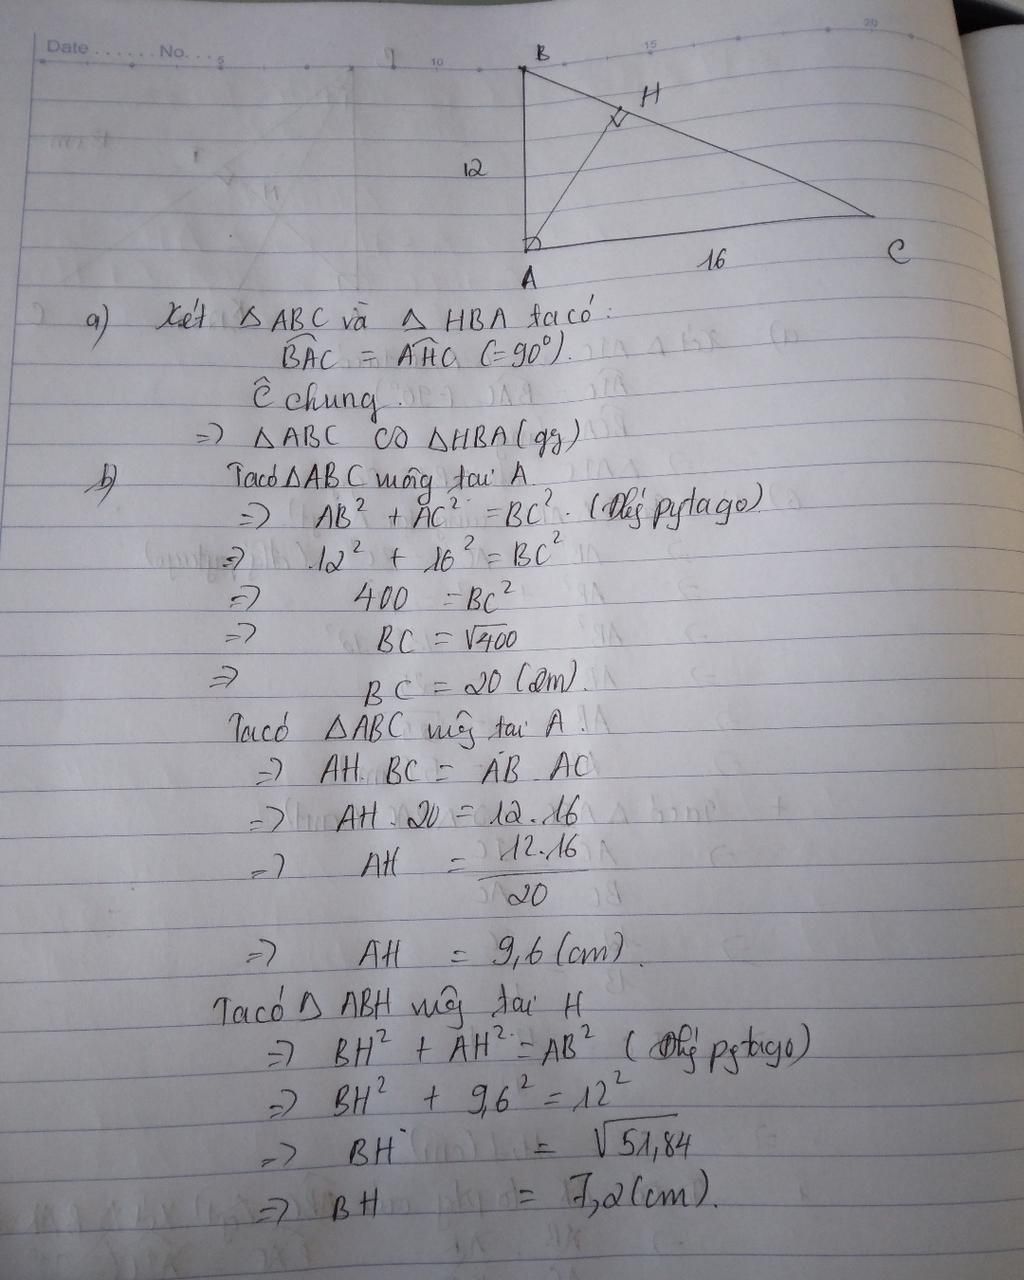 Date ...... No. ...
5
10
15
20
B
H
12
A
16
C
a) Xét △ ABC và △ HBA ta có:
BAC = AHC (=90°).
Ĉ chung.
=> △ABC ∽ △HBA (gg)
b) Ta có △ABC vuông tại A
=> AB² + AC² = BC². (Đlý pytago)
=> 12² + 16² = BC²
=> 400 = BC²
=> BC = √400
=> BC = 20 (cm).
Ta có △ABC vuông tại A.
=> AH. BC = AB . AC
=> AH . 20 = 12 . 16
=> AH = 12.16
20
=> AH = 9,6 (cm).
Ta có △ ABH vuông tại H
=> BH² + AH² = AB² (Đlý pytago)
=> BH² + 9,6² = 12²
=> BH = √51,84
=> BH = 7,2 (cm).